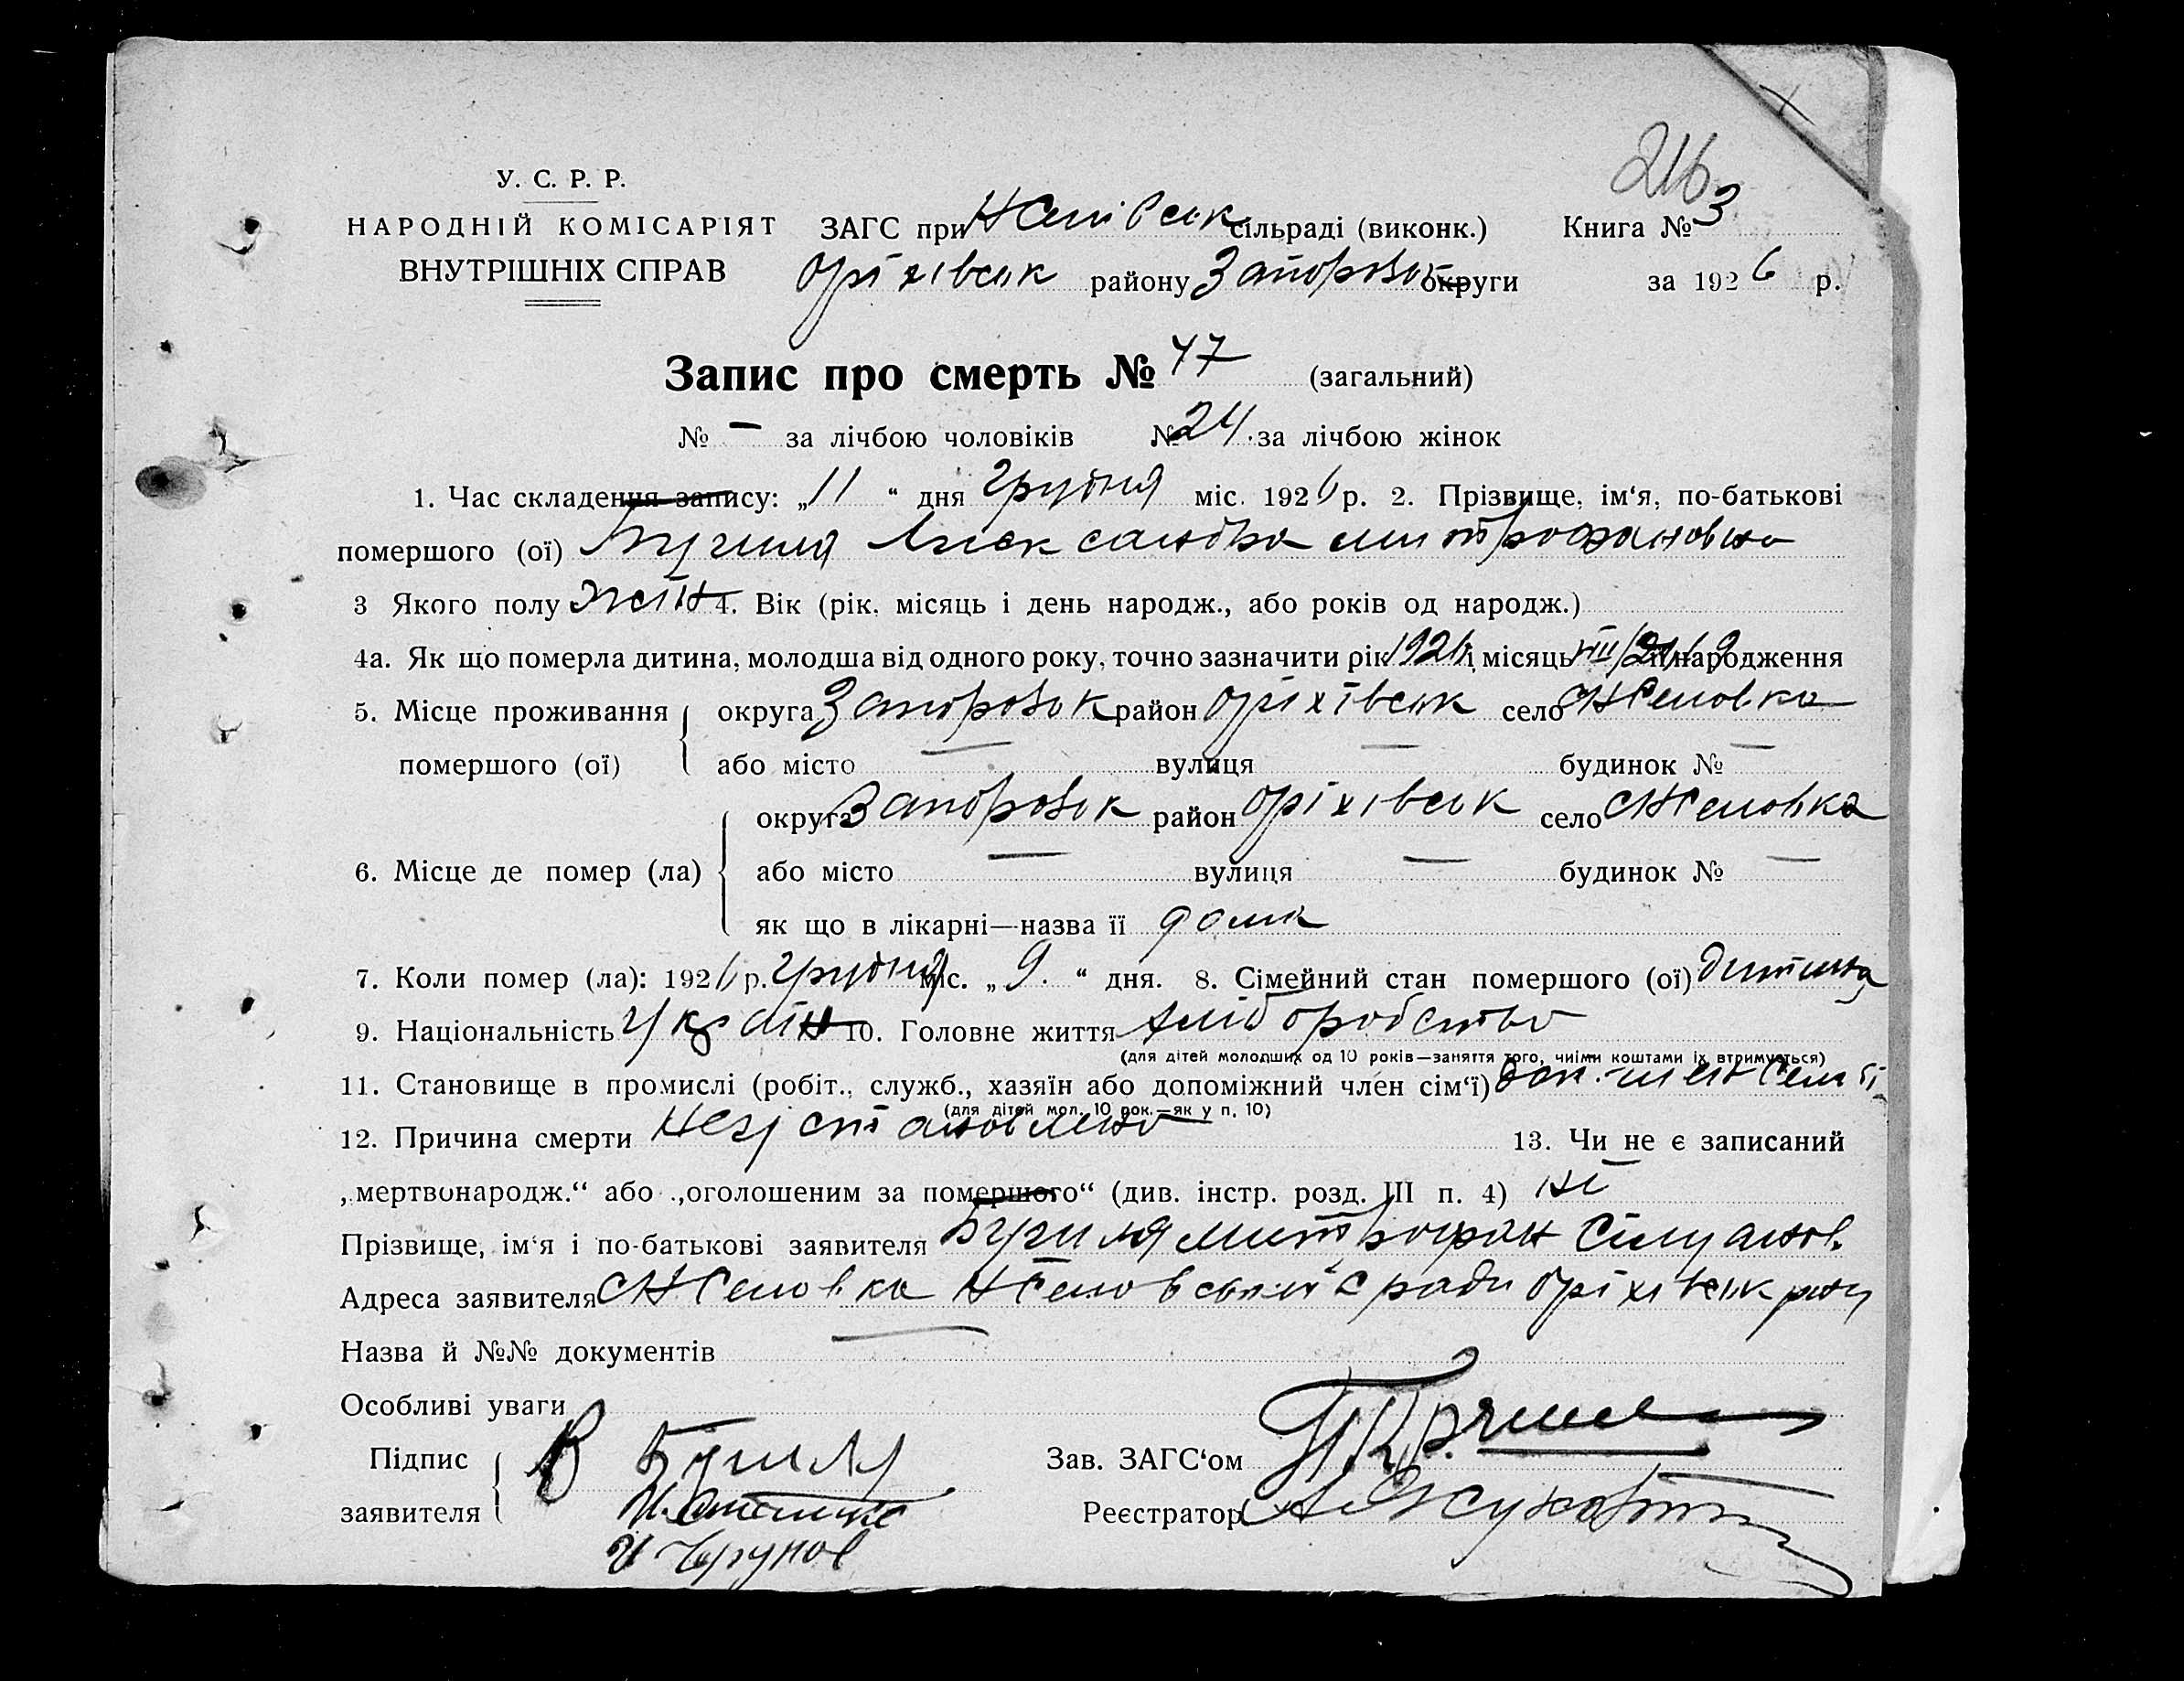 216
У. С. Р. Р.
НАРОДНІЙ КОМІСАРІЯТ
ВНУТРІШНІХ СПРАВ
ЗАГС при сільраді (виконк.)
Оріхівськ району Запорозьк округи
Книга № 3
за 1926 р.
Запис про смерть № 47 (загальний)
№ – за лічбою чоловіків № 24 за лічбою жінок
1. Час складення запису: „11“ дня грудня міс. 1926 р. 2. Прізвище, ім‘я, по-батькові
помершого (ої) Бугиля Александра Митрофановна
3 Якого полу жін 4. Вік (рік, місяць і день народж., або років од народж.)
4а. Як що померла дитина, молодша від одного року, точно зазначити рік 1926, місяць VIII народження
5. Місце проживання помершого (ої) округа Запорозьк район Оріхівськ село
або місто — вулиця — будинок № —
6. Місце де помер (ла) округа Запорозьк район Оріхівськ село
або місто — вулиця — будинок № —
як що в лікарні—назва її дома
7. Коли помер (ла): 1926 р. грудня міс. „9.“ дня. 8. Сімейний стан помершого (ої) дитина
9. Національність Україн 10. Головне життя хліборобство
(для дітей молодших од 10 років—заняття того, чиїми коштами їх втримується)
11. Становище в промислі (робіт., служб., хазяїн або допоміжний член сім‘ї) доп. член сем‘ї
(для дітей мол. 10 рок.—як у п. 10)
12. Причина смерти незістановлено 13. Чи не є записаний
„мертвонародж.“ або „оголошеним за помершого“ (див. інстр. розд. III п. 4) ні
Прізвище, ім‘я і по-батькові заявителя Бугиля Митрофан Силуанов.
Адреса заявителя с ради Оріхівськ рану
Назва й №№ документів —
Особливі уваги
Підпис заявителя
Зав. ЗАГС‘ом
Реєстратор